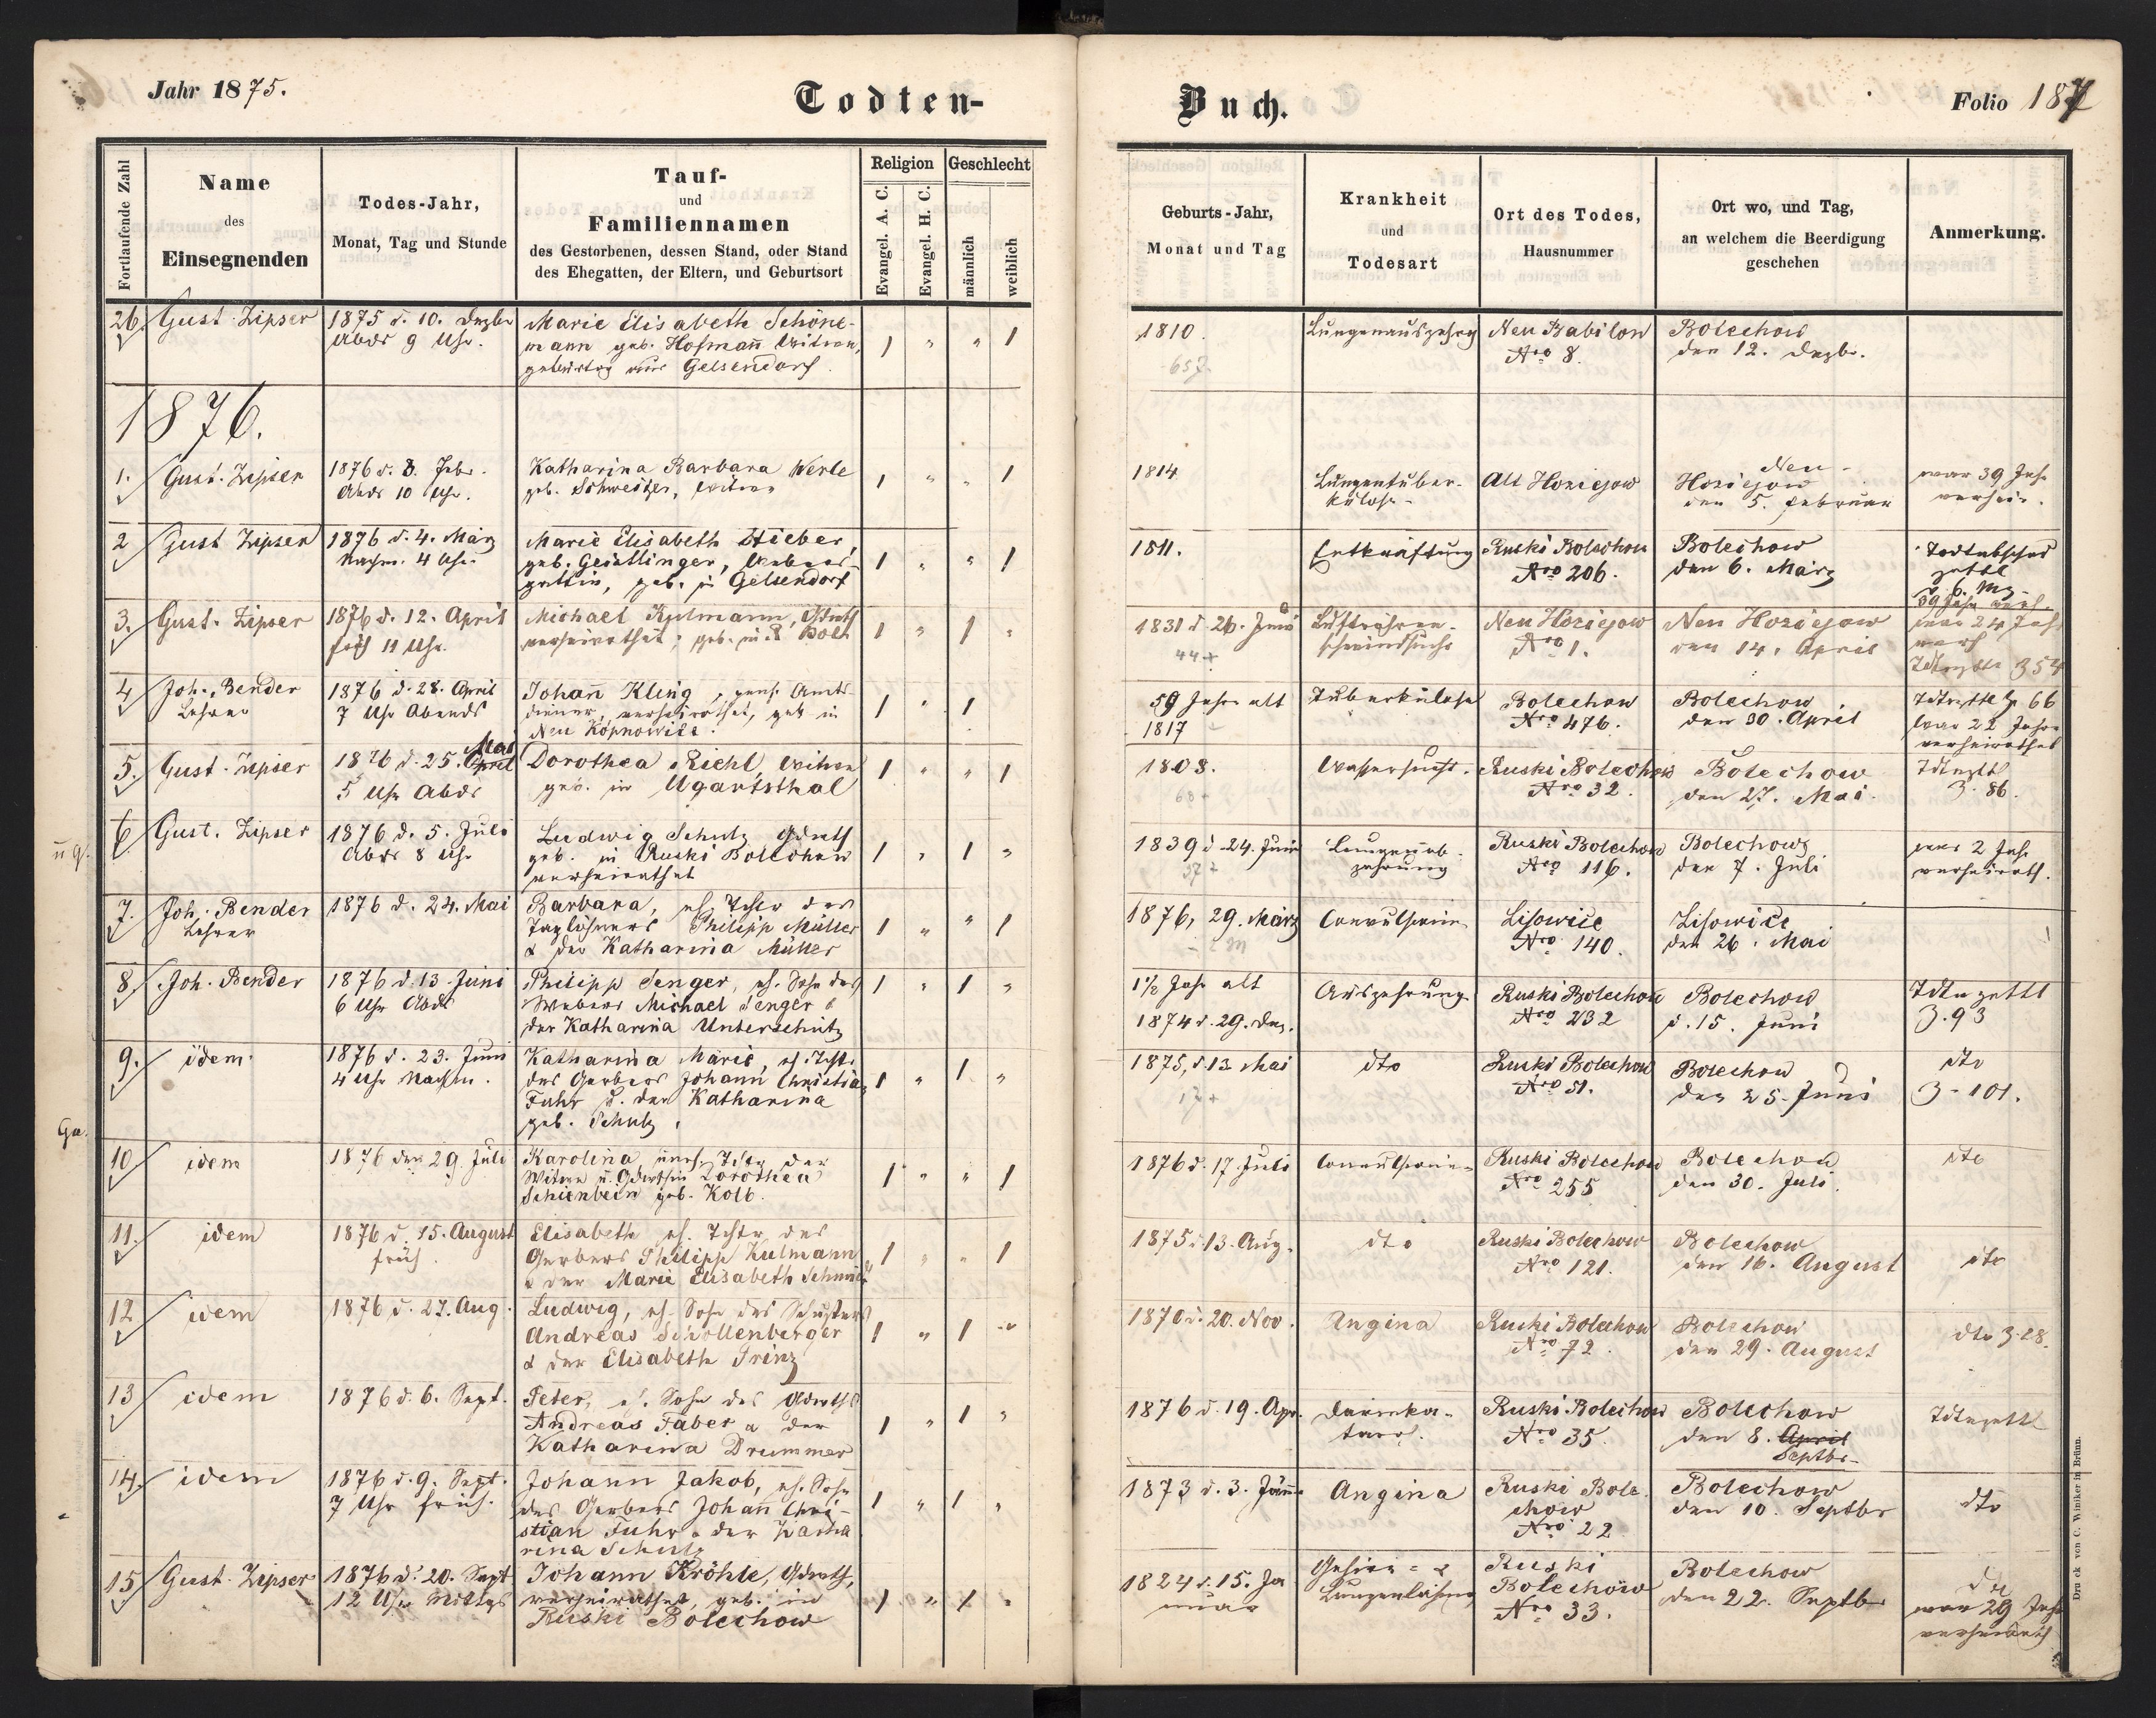 Jahr 1875.
Todten-
Buch.
Folio 187
Fortlaufende Zahl
Name
des
Einsegnenden
Todes-Jahr,
Monat, Tag und Stunde
Tauf-
und
Familiennamen
des Gestorbenen, dessen Stand, oder Stand
des Ehegatten, der Eltern, und Geburtsort
Religion
Evangel. A. C.
Evangel. H. C.
Geschlecht
männlich
weiblich
Geburts-Jahr,
Monat und Tag
Krankheit
und
Todesart
Ort des Todes,
Hausnummer
Ort wo, und Tag,
an welchem die Beerdigung
geschehen
Anmerkung.
26. Gust. Zipser
1875 d. 10. Dezbr
Abds 9 Uhr.
Marie Elisabeth Schöne-
mann geb. Hofmañ Witwe,
gebürtig aus Gelsendorf.
1 " " 1
1810.
657.
Lungenauszehrg
Neu Babilon
Nro 8.
Bolechow
den 12. Dezbr.
1876.
1. Gust. Zipser
1876 d. 3. Febr.
Abds 10 Uhr.
Katharina Barbara Werle
geb. Schweitzer, Witwe
1 " " 1
1814
Lungentuber-
kulose
Alt Hoziejow
Neu-
Hoziejow
den 5. Februar
war 39 Jahr
verheir.
2 Gust Zipser
1876 d. 4. März
Nachm. 4 Uhr.
Marie Elisabeth Stieber,
geb. Geistlinger, Webers-
gattin, geb. in Gelsendorf
1 " " 1
1811.
Entkräftung
Ruski Bolechow
Nro 206.
Bolechow
den 6. März
zettl
39 Jahr verh.
3. Gust. Zipser
1876 d. 12. April
früh 11 Uhr.
Michael Kulmann, Gdwth
verheirathet, geb. in R Bole
1 " 1 "
1831 d. 26. Juni
44+
Luftröhren-
schwindsucht
Neu Hoziejow
Nro 1.
Neu Hoziejow
den 14. April
war 24 Jahr
verh
354
4 Joh. Bender
Lehrer
1876 d. 28. April
7 Uhr Abends
Johañ Kling, pens. Amts-
diener, verheirathet, geb in
Neu Kopnowice.
1 " 1
59 Jahre alt
1817
Tuberkulose
Bolechow
Nro 476.
Bolechow
den 30. April
66
war 22 Jahre
verheirathet
5. Gust. Zipser
Mai
1876 d. 25. April
5 Uhr Abds
Dorothea Riehl, Witwe
geb. in Ugartsthal
1 " " 1
1808.
68+
Wassersucht.
Ruski Bolechow
Nro 32.
Bolechow
den 27. Mai.
3. 86.
u g.
6 Gust. Zipser
1876 d. 5. Juli
Abds 8 Uhr
Ludwig Schulz Gdwth
geb. in Ruski Bolechow
verheirathet
1 " 1 "
1839 d. 24. Juni
37+
Lungenab-
zehrung
Ruski Bolechow
Nro 116.
Bolechow
den 7. Juli
war 2 Jahr
verheirath.
7. Joh. Bender
Lehrer
1876 d. 24. Mai
Barbara, eh. Tchtr des
Taglöhners Philipp Müller
& der Katharina Müller
1 " " 1
1876, 29. März
Convulsionen
Lisowice
Nro 140.
Lisowice
den 26. Mai
8 Joh. Bender
1876 d. 13. Juni
6 Uhr Abds
Philipp Senger, eh. Sohn des
Webers Michael Senger &
der Katharina Unterschütz
1 " 1 "
1½ Jahr alt
1874 d. 29. Dez.
Auszehrung
Ruski Bolechow
Nro 232
Bolechow
d. 15. Juni
Tdtnzettl
3.93
9. idem.
1876 d. 23. Juni
4 Uhr Nachm.
Katharina Marie, eh. Tchtr
des Gerbers Johañ Christian
Fuhr u. der Katharina
geb. Schulz.
1 " 1 "
1875, d. 13. Mai
17+
dto
Ruski Bolechow
Nro 51.
Bolechow
den 25. Juni
dto
3. 101.
Ga.
10 idem
1876 den 29. Juli
Karolina, uneh. Tchtr der
Witwe u. Gdwthin Dorothea
Schienbein geb. Kolb.
1 " " 1
1876 d. 17. Juli
Convulsionen
Ruski Bolechow
Nro 255
Bolechow
den 30. Juli.
dto
11. idem
1876 d. 15. August
früh.
Elisabeth eh. Tchtr des
Gerbers Philipp Kulmann
& der Marie Elisabeth Schmidt
1 " " 1
1875 d. 13. Aug.
dto
Ruski Bolechow
Nro 121.
Bolechow
den 16. August
dto
12 idem
1876 d. 27. Aug.
Ludwig, eh. Sohn des Schusters
Andreas Schollenberger
& der Elisabeth Prinz
1 " 1 "
1870 d. 20. Nov.
Angina
Ruski Bolechow
Nro 72.
Bolechow
den 29. August
dto 3.28.
13 idem
1876 d. 6. Sept.
Peter, eh. Sohn des Gdwths
Andreas Faber & der
Katharina Drummer
1 " 1 "
1876 d. 19. Apr.
Darmka-
tarr.
Ruski Bolechow
Nro 35.
Bolechow
den 8. April
Septbr.
Tdtnzettl
14. idem
1876 d. 9. Sept.
7 Uhr früh.
Johann Jakob, eh. Sohn
des Gerbers Johañ Chri-
stian Fuhr & der Katha
rina Schulz
1 " 1 "
1873 d. 3. Jänn.
Angina
Ruski Bole
chow
Nro 22
Bolechow
den 10. Septbr
dto
15 Gust. Zipser
1876 d. 20. Sept
12 Uhr Mittgs
Johann Kröhle, Gdwth,
verheirathet, geb. in
Ruski Bolechow
1 " 1 "
1824 d. 15. Ja
nuar
Gehirn- &
Lungenlähmg
Ruski
Bolechow
Nro 33.
Bolechow
den 22. Septb
war 29 Jahr
verheirath
Druck von C. Winiker in Brünn.